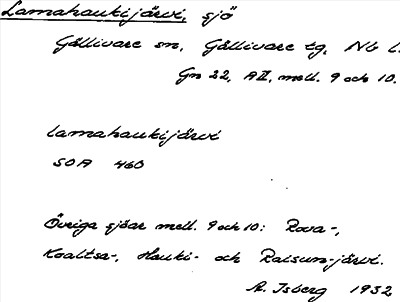 Lamahaukijärvi, sjö
Gällivare sn, Gällivare tg, Nb l.
Gn 22, A II, mell. 9 och 10.
lamahaukijärvi
SOA 460
Övriga sjöar mell. 9 och 10: Rova-,
Koalitsa-, Hauki- och Raisun-järvi.
A. Isberg 1932